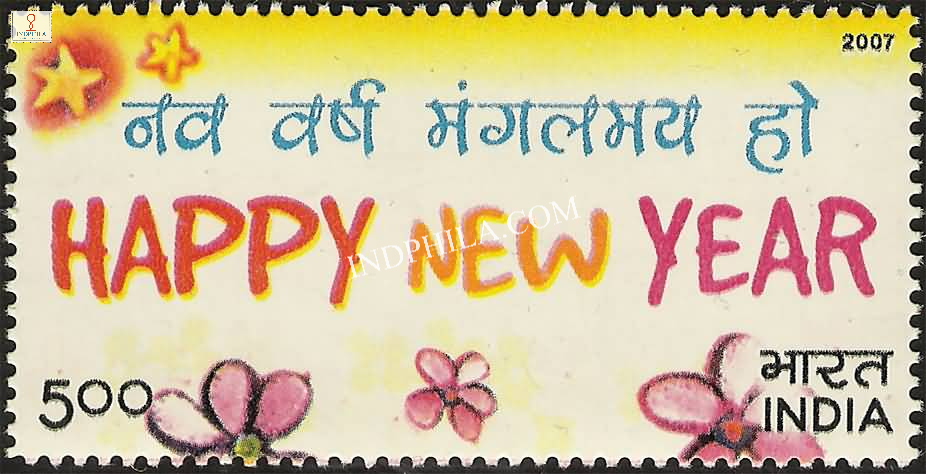 INDPHILA
2007
नव वर्ष मंगलमय हो
HAPPY NEW YEAR
INDPHILA.COM
500
भारत
INDIA